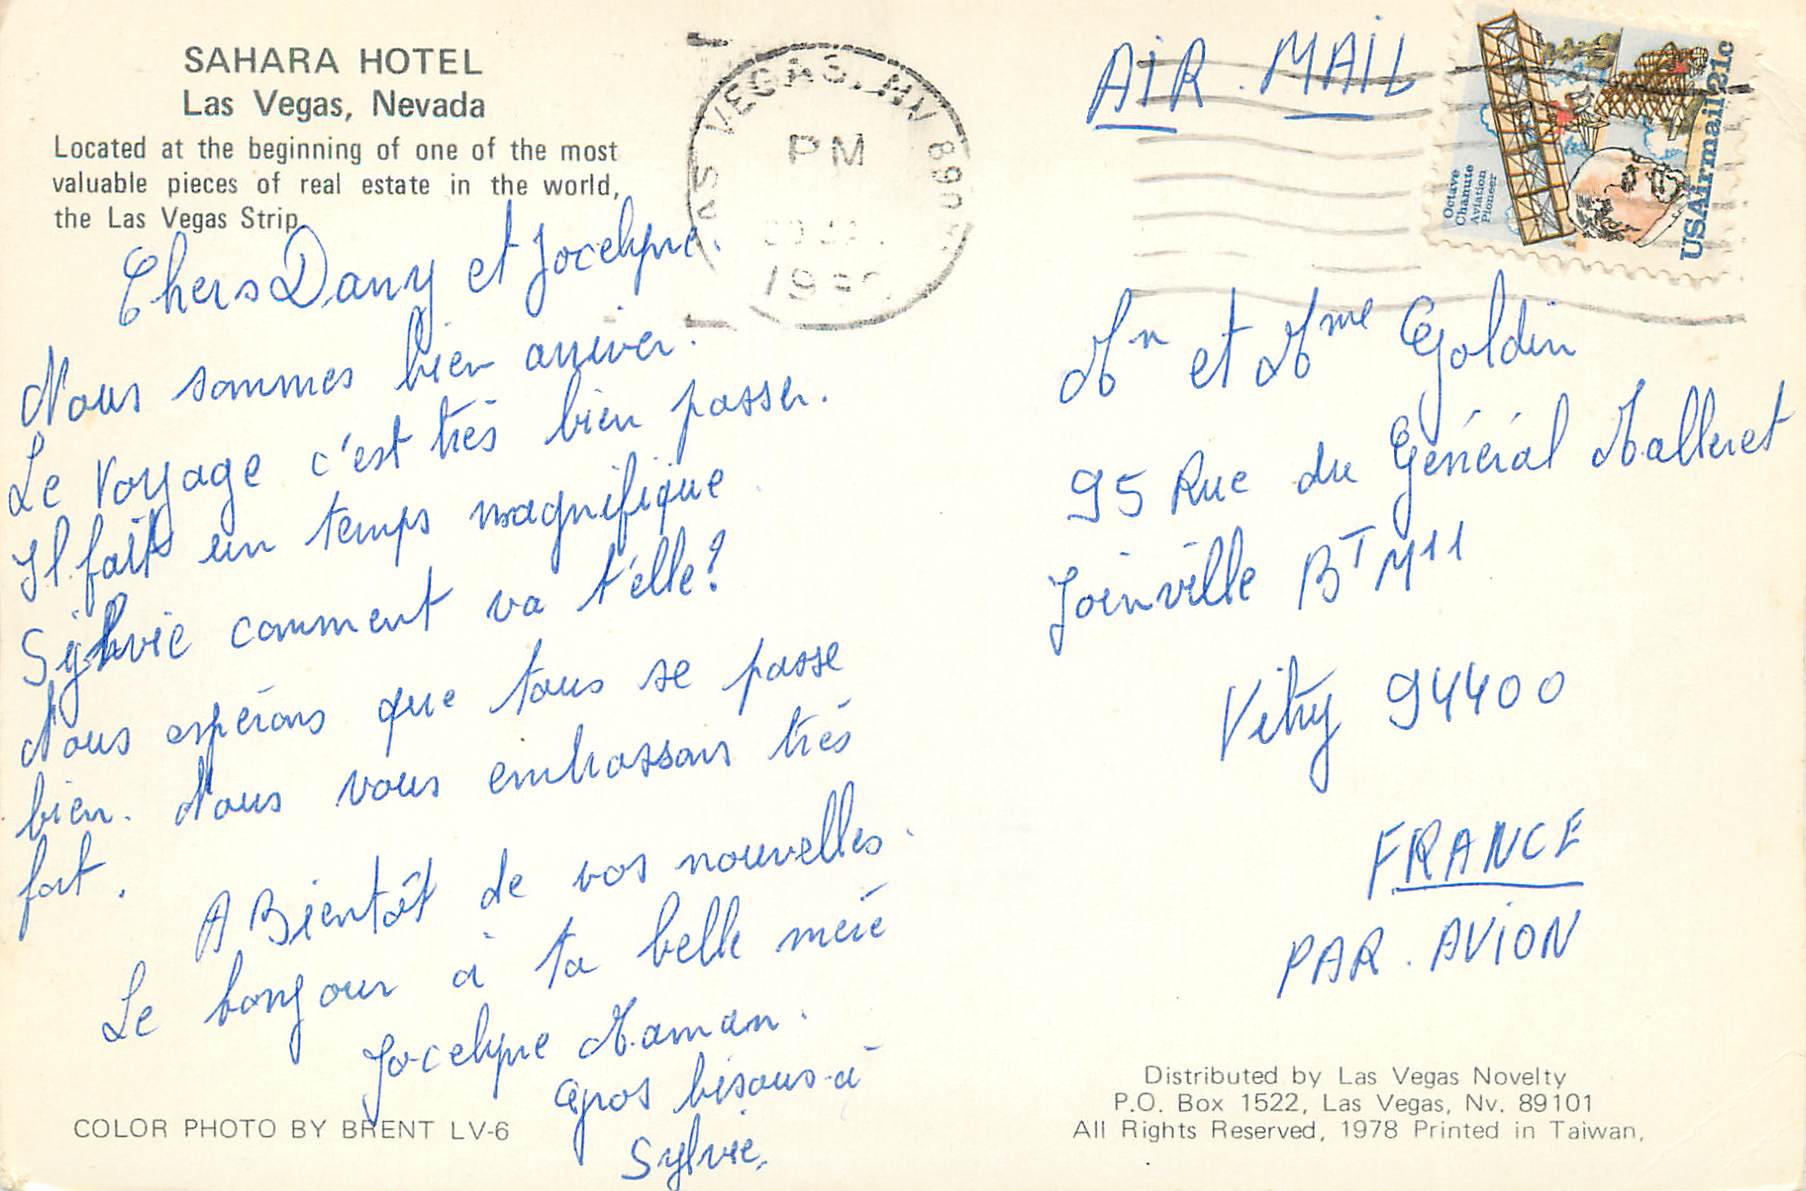 SAHARA HOTEL
Las Vegas, Nevada
Located at the beginning of one of the most
valuable pieces of real estate in the world,
the Las Vegas Strip.
Chers Dany et Jocelyne.
Nous sommes bien arriver.
Le Voyage c'est très bien passer.
Il fait un temps magnifique
Sylvie comment va t'elle?
Nous espérons que tous se passe
bien. Nous vous embrassons très
fort.
A Bientôt de vos nouvelles.
Le bonjour à ta belle mère
Jocelyne Maman.
Gros bisous à
Sylvie.
COLOR PHOTO BY BRENT LV-6
LAS VEGAS, NV
PM
AIR MAIL
Octave
Chanute
Aviation
Pioneer
USAirmail 21c
Mr et Mme Goldin
95 Rue du Général Malleret
Joinville BT M11
Vitry 94400
FRANCE
PAR AVION
Distributed by Las Vegas Novelty
P.O. Box 1522, Las Vegas, Nv. 89101
All Rights Reserved, 1978 Printed in Taiwan.